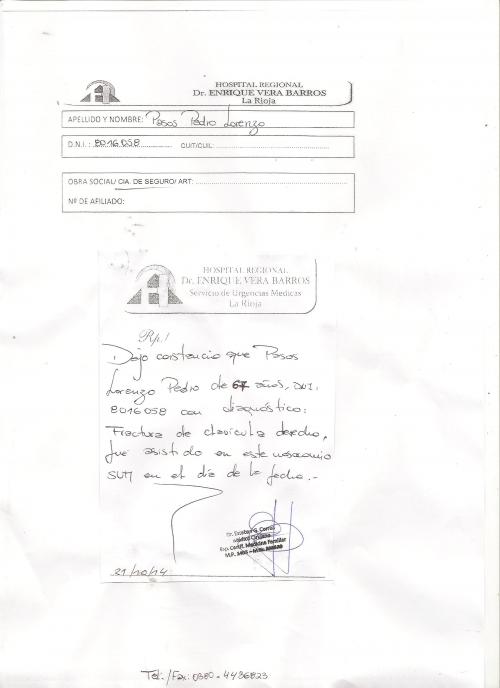 HOSPITAL REGIONAL
Dr. ENRIQUE VERA BARROS
La Rioja
APELLIDO Y NOMBRE: Posos Pedro Lorenzo
D.N.I.: 8016058 CUIT/CUIL:
OBRA SOCIAL/ CIA. DE SEGURO/ ART:
Nº DE AFILIADO:
HOSPITAL REGIONAL
Dr. ENRIQUE VERA BARROS
Servicio de Urgencias Medicas
La Rioja
Rp./
Dejo constancia que Posos
Lorenzo Pedro de 67 años, DNI.
8016058 con diagnóstico:
Fractura de clavícula derecho,
fue asistido en este nosocomio
SUM en el día de la fecha.-
Dr. Esteban G.
Médico Cirujano
Esp. Certif. Medicina Familiar
M.P.
21/10/14
Tel:/Fax: 0380-4436823